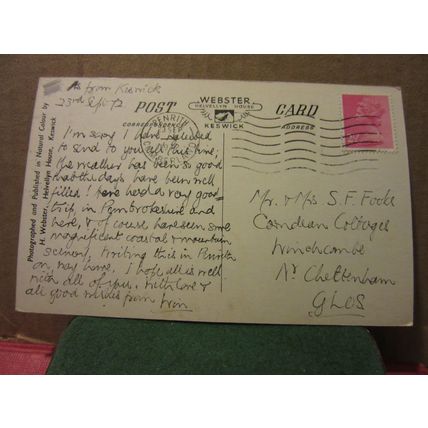 As from Keswick
23rd Sept 72
POST CARD
WEBSTER
HELVELLYN HOUSE
KESWICK
CORRESPONDENCE
ADDRESS
PENRITH
Photographed and Published in Natural Colour by
H. Webster, Helvellyn House, Keswick
I'm sorry I have neglected
to send to you all this time,
the weather has been so good
that the days have been well
filled! I have had a very good
trip, in Pembrokeshire and
here, & of course have seen some
magnificent coastal & mountain
scenery, Writing this in Penrith
on way home. I hope all is well
with all of you. With love &
all good wishes from
Mr. & Mrs. S. F. Foote
Corndean Cottages
Winchcombe
Nr Cheltenham
GLOS